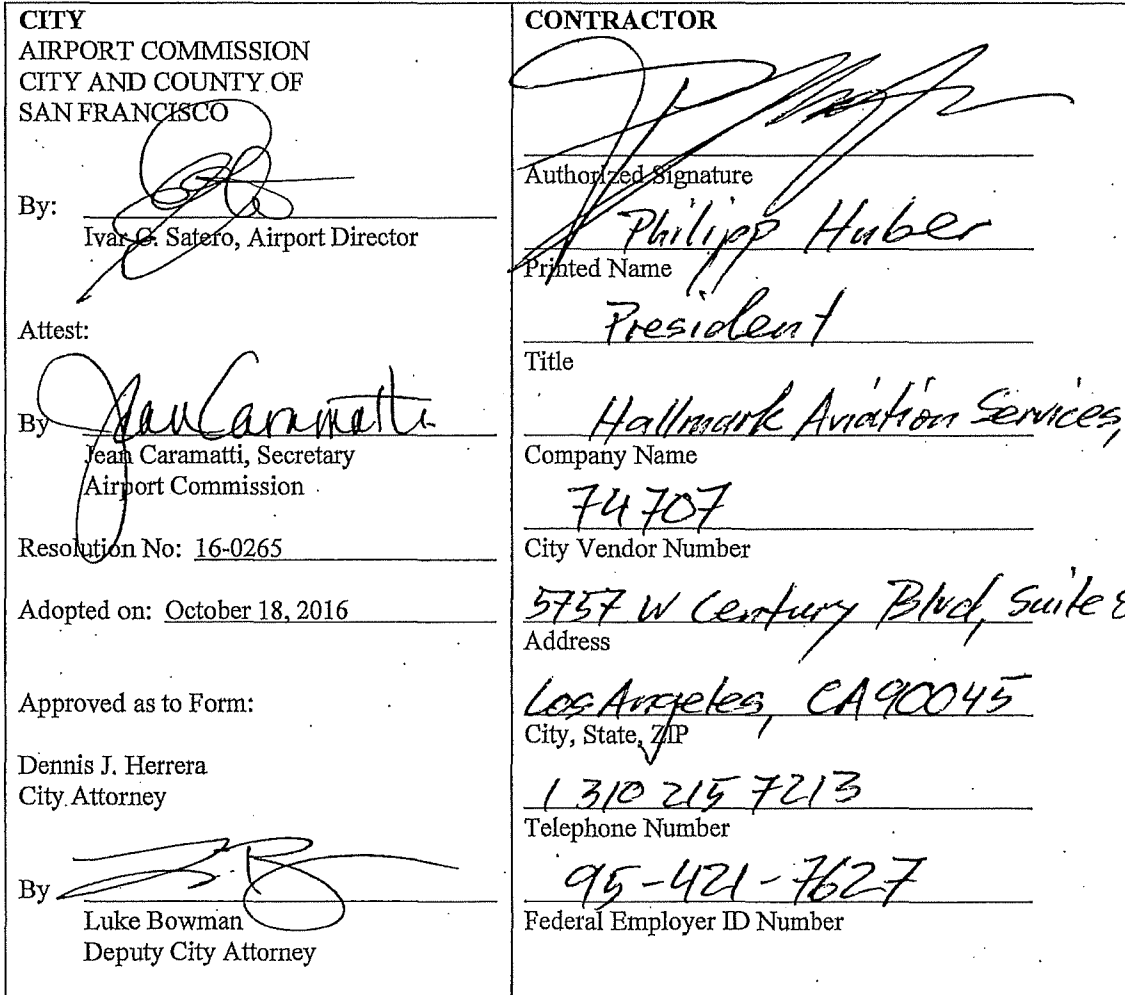 CITY
AIRPORT COMMISSION
CITY AND COUNTY OF
SAN FRANCISCO
By:
Ivar C. Satero, Airport Director
Attest:
By Jean Caramatti
Jean Caramatti, Secretary
Airport Commission
Resolution No: 16-0265
Adopted on: October 18, 2016
Approved as to Form:
Dennis J. Herrera
City Attorney
By
Luke Bowman
Deputy City Attorney
CONTRACTOR
Authorized Signature
Philipp Huber
Printed Name
President
Title
Hallmark Aviation Services,
Company Name
74707
City Vendor Number
5757 W Century Blvd, Suite
Address
Los Angeles, CA 90045
City, State, ZIP
1 310 215 7213
Telephone Number
95-421-7627
Federal Employer ID Number